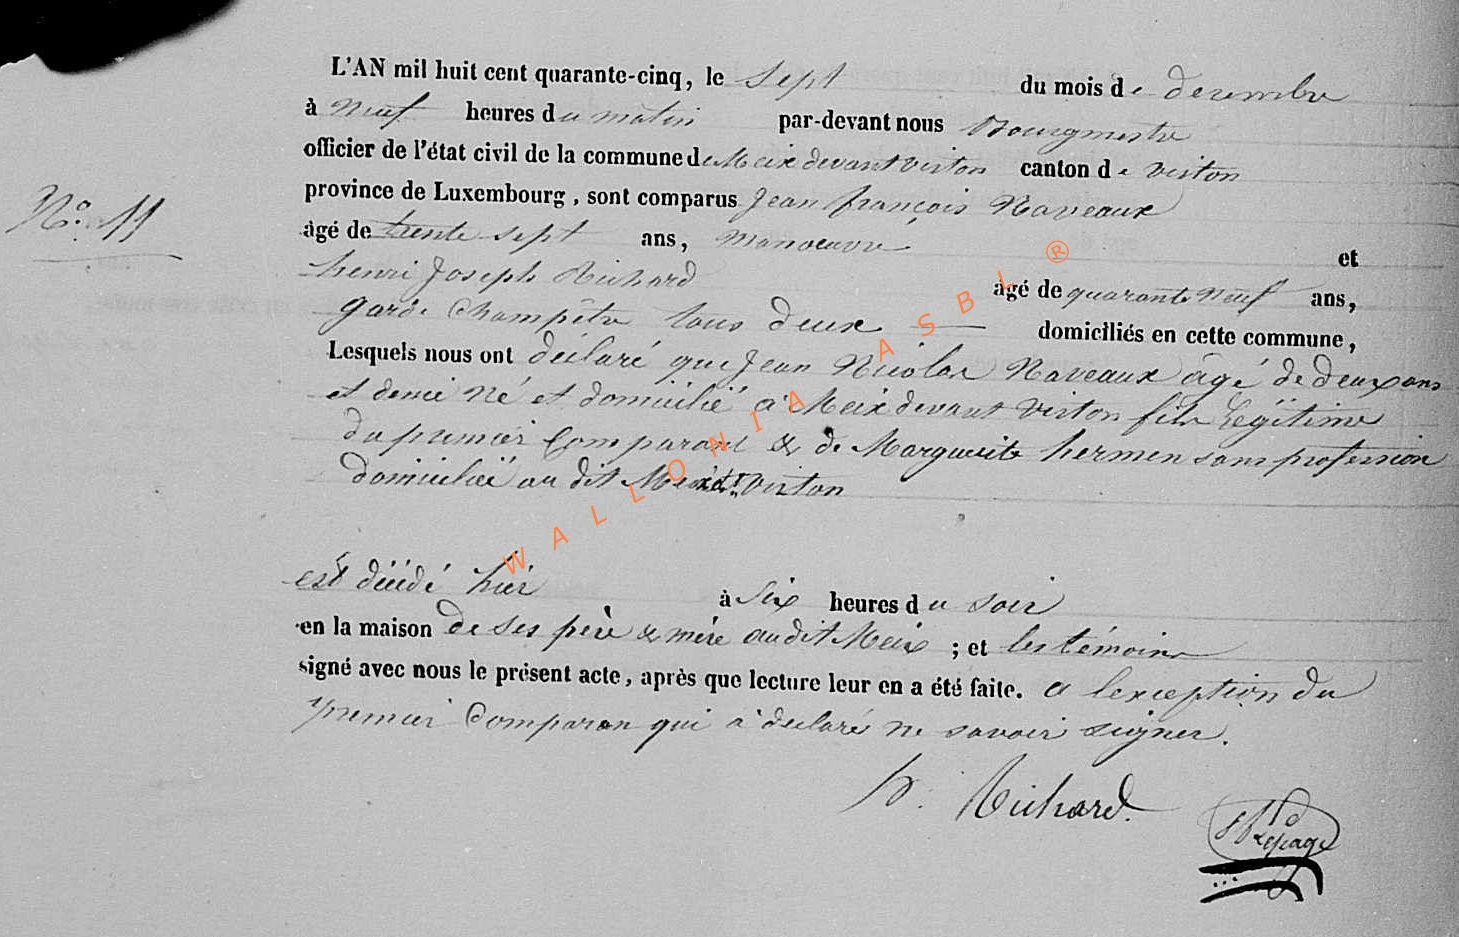 L'AN mil huit cent quarante-cinq, le Sept du mois de decembre
à Neuf heures du matin par-devant nous Bourgmestre
officier de l'état civil de la commune de Meix devant virton canton de virton
province de Luxembourg, sont comparus Jean françois Naveaux
N° 11
âgé de trente sept ans, manoeuvre et
henri Joseph Richard âgé de quarante Neuf ans,
garde Champêtre tous deux domiciliés en cette commune,
Lesquels nous ont déclaré que Jean Nicolas Naveaux âgé de deux ans
et demi né et domicilié à Meix devant virton fils légitime
du premier Comparant & de Marguerite hermen sans profession
domiciliée au dit Meix dt virton
est décédé hier à Six heures du soir
en la maison de ses père & mère audit Meix ; et les témoins
signé avec nous le présent acte, après que lecture leur en a été faite. a lexception du
premier Comparan qui à declaré ne savoir signer.
h. Richard.
Lepage
WALLONIA ASBL ®